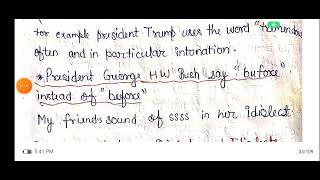 for example president Trump uses the word "tremendou
often and in particular intonation.
* President Guorge HW Bush say "bufore"
instead of "before"
My friends sound of ssss in her idiolect
5:41 PM
33/109